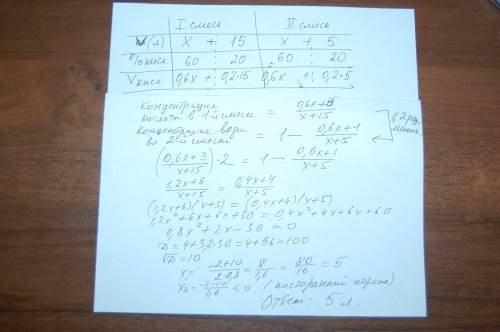 I смесь II смесь
V(л) x + 15 x + 5
% кисл. 60 20 60 20
Vкисл 0,6x + 0,2·15 0,6x + 0,2·5
Концентрация
кислоты в 1-й смеси = (0,6x+3)/(x+15)
Концентрация воды
во 2-й смеси = 1 − (0,6x+1)/(x+5)
в 2 раз
((0,6x+3)/(x+15))·2 = 1 − (0,6x+1)/(x+5)
(1,2x+6)/(x+15) = (0,4x+4)/(x+5)
(1,2x+6)(x+5) = (0,4x+4)(x+5)
1,2x²+6x+6x+30 = 0,4x²+4x+6x+60
0,8x²+2x−30 = 0
D = 4+3,2·30 = 4+96 = 100
√D = 10
x₁ = (−2+10)/(2·0,8) = 8/1,6 = 80/16 = 5
x₂ = (−2−10)/1,6 < 0 (посторонний корень)
Ответ: 5 л.